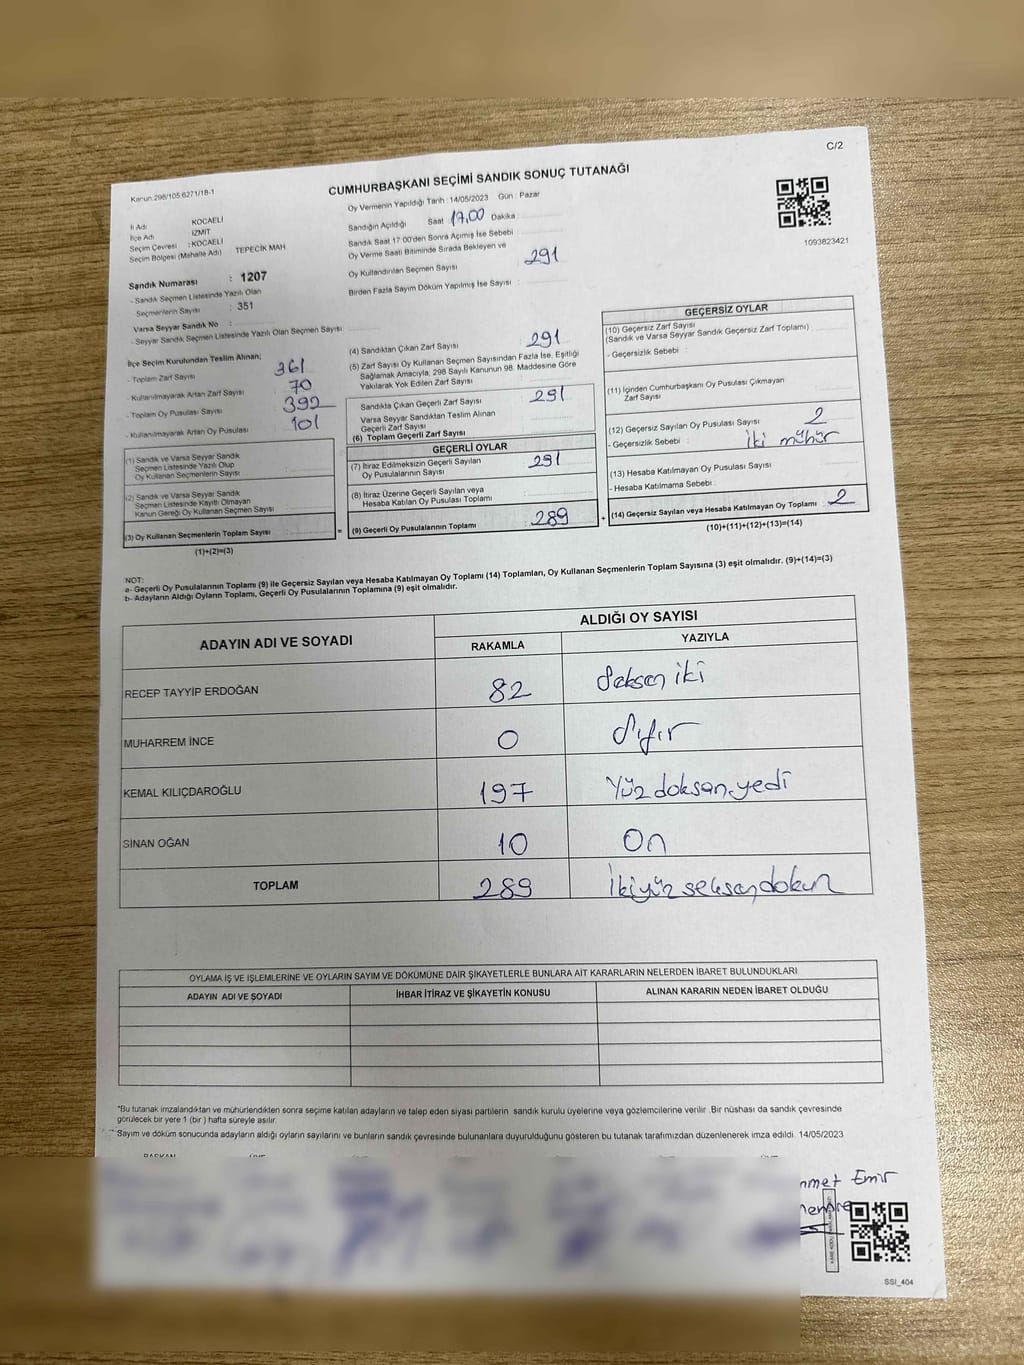 C/2
Kanun.298/105.6271/18-1
CUMHURBAŞKANI SEÇİMİ SANDIK SONUÇ TUTANAĞI
Oy Vermenin Yapıldığı Tarih : 14/05/2023 Gün : Pazar
İl Adı KOCAELİ
İlçe Adı İZMİT
Seçim Çevresi : KOCAELİ
Seçim Bölgesi (Mahalle Adı) TEPECİK MAH
Sandık Numarası : 1207
- Sandık Seçmen Listesinde Yazılı Olan
Seçmenlerin Sayısı : 351
Varsa Seyyar Sandık No :
- Seyyar Sandık Seçmen Listesinde Yazılı Olan Seçmen Sayısı:
Sandığın Açıldığı Saat 17,00 Dakika :
Sandık Saat 17:00'den Sonra Açımış İse Sebebi :
Oy Verme Saati Bitiminde Sırada Bekleyen ve
Oy Kullandırılan Seçmen Sayısı 291
Birden Fazla Sayım Döküm Yapılmış İse Sayısı :
1093823421
İlçe Seçim Kurulundan Teslim Alınan;
- Toplam Zarf Sayısı 361
- Kullanılmayarak Artan Zarf Sayısı 70
- Toplam Oy Pusulası Sayısı 392
- Kullanılmayarak Artan Oy Pusulası 101
(1) Sandık ve Varsa Seyyar Sandık
Seçmen Listesinde Yazılı Olup
Oy Kullanan Seçmenlerin Sayısı
(2) Sandık ve Varsa Seyyar Sandık
Seçmen Listesinde Kayıtlı Olmayan
Kanun Gereği Oy Kullanan Seçmen Sayısı
(3) Oy Kullanan Seçmenlerin Toplam Sayısı
(1)+(2)=(3)
=
(4) Sandıktan Çıkan Zarf Sayısı 291
(5) Zarf Sayısı Oy Kullanan Seçmen Sayısından Fazla İse, Eşitliği
Sağlamak Amacıyla, 298 Sayılı Kanunun 98. Maddesine Göre
Yakılarak Yok Edilen Zarf Sayısı
Sandıkta Çıkan Geçerli Zarf Sayısı 291
Varsa Seyyar Sandıktan Teslim Alınan
Geçerli Zarf Sayısı
(6) Toplam Geçerli Zarf Sayısı
GEÇERLİ OYLAR
(7) İtiraz Edilmeksizin Geçerli Sayılan
Oy Pusulalarının Sayısı 291
(8) İtiraz Üzerine Geçerli Sayılan veya
Hesaba Katılan Oy Pusulası Toplamı
(9) Geçerli Oy Pusulalarının Toplamı 289
+
GEÇERSİZ OYLAR
(10) Geçersiz Zarf Sayısı
(Sandık ve Varsa Seyyar Sandık Geçersiz Zarf Toplamı)
- Geçersizlik Sebebi
(11) İçinden Cumhurbaşkanı Oy Pusulası Çıkmayan
Zarf Sayısı
(12) Geçersiz Sayılan Oy Pusulası Sayısı 2
- Geçersizlik Sebebi : iki mühür
(13) Hesaba Katılmayan Oy Pusulası Sayısı
- Hesaba Katılmama Sebebi :
(14) Geçersiz Sayılan veya Hesaba Katılmayan Oy Toplamı 2
(10)+(11)+(12)+(13)=(14)
NOT:
a- Geçerli Oy Pusulalarının Toplamı (9) ile Geçersiz Sayılan veya Hesaba Katılmayan Oy Toplamı (14) Toplamları, Oy Kullanan Seçmenlerin Toplam Sayısına (3) eşit olmalıdır. (9)+(14)=(3)
b- Adayların Aldığı Oyların Toplamı, Geçerli Oy Pusulalarının Toplamına (9) eşit olmalıdır.
ADAYIN ADI VE SOYADI ALDIĞI OY SAYISI
RAKAMLA YAZIYLA
RECEP TAYYİP ERDOĞAN 82 Seksen iki
MUHARREM İNCE 0 Sıfır
KEMAL KILIÇDAROĞLU 197 Yüz doksan yedi
SİNAN OĞAN 10 On
TOPLAM 289 İkiyüz seksen dokuz
OYLAMA İŞ VE İŞLEMLERİNE VE OYLARIN SAYIM VE DÖKÜMÜNE DAİR ŞİKAYETLERLE BUNLARA AİT KARARLARIN NELERDEN İBARET BULUNDUKLARI
ADAYIN ADI VE SOYADI İHBAR İTİRAZ VE ŞİKAYETİN KONUSU ALINAN KARARIN NEDEN İBARET OLDUĞU
*Bu tutanak imzalandıktan ve mühürlendikten sonra seçime katılan adayların ve talep eden siyasi partilerin sandık kurulu üyelerine veya gözlemcilerine verilir. Bir nüshası da sandık çevresinde
görülecek bir yere 1 (bir) hafta süreyle asılır.
Sayım ve döküm sonucunda adayların aldığı oyların sayılarını ve bunların sandık çevresinde bulunanlara duyurulduğunu gösteren bu tutanak tarafımızdan düzenlenerek imza edildi. 14/05/2023
BAŞKAN
nmet Emir
SSI_404